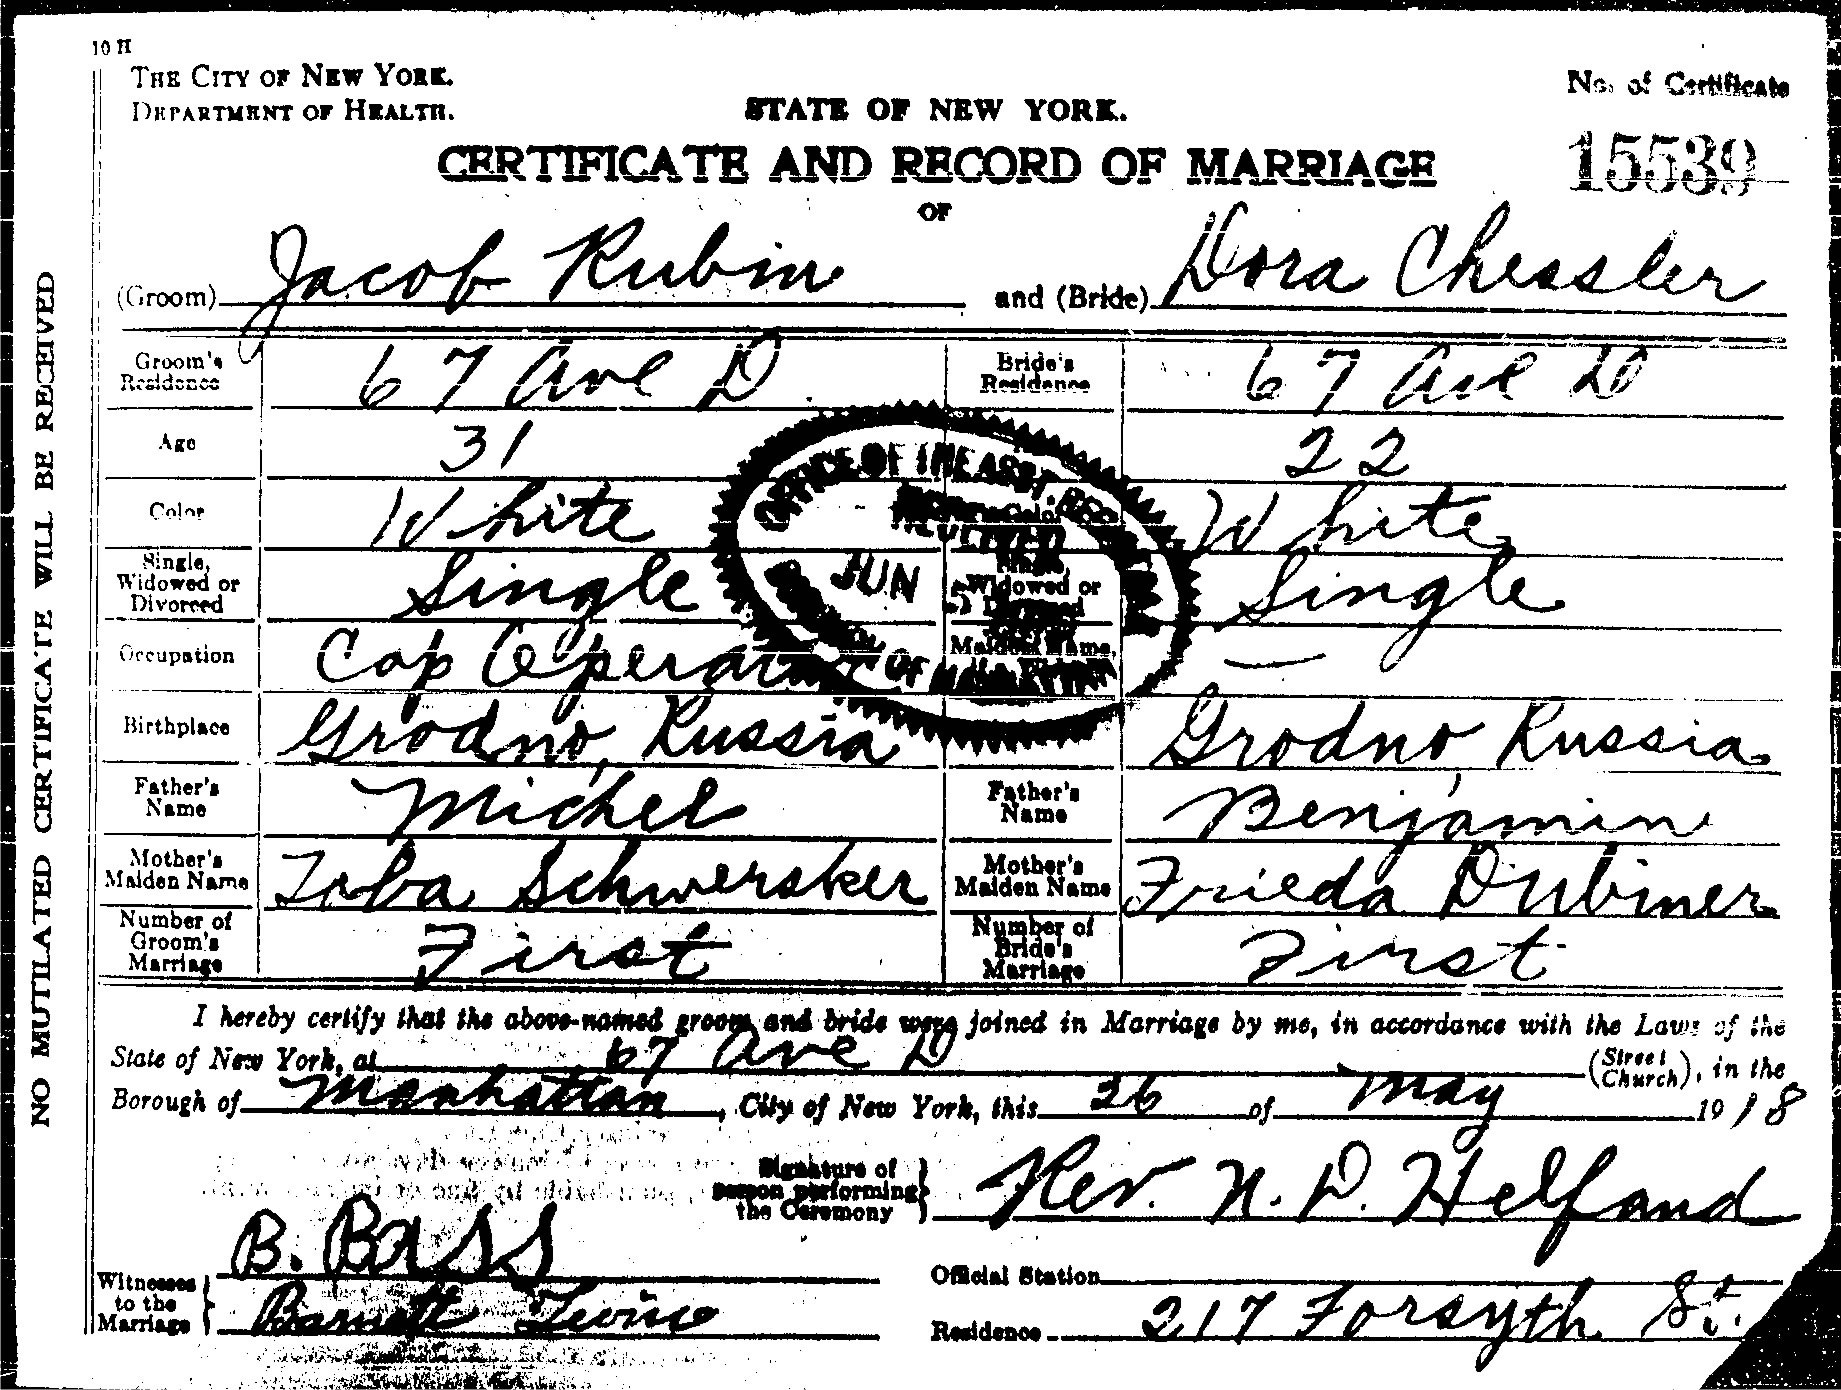 10 H
THE CITY OF NEW YORK.
DEPARTMENT OF HEALTH.
STATE OF NEW YORK.
No. of Certificate
15539
CERTIFICATE AND RECORD OF MARRIAGE
OF
(Groom) Jacob Rubin and (Bride) Dora Chessler
Groom's Residence 67 Ave D Bride's Residence 67 Ave D
Age 31 22
Color White Color White
Single, Widowed or Divorced Single Single, Widowed or Divorced Single
Occupation Cap Operator Maiden Name, —
Birthplace Grodno, Russia Grodno, Russia
Father's Name Michel Father's Name Benjamin
Mother's Maiden Name Toba Schwersker Mother's Maiden Name Frieda Dubiner
Number of Groom's Marriage First Number of Bride's Marriage First
OFFICE OF THE ASST. REG
RECEIVED
JUN 5
OF MANHATTAN
I hereby certify that the above-named groom and bride were joined in Marriage by me, in accordance with the Laws of the
State of New York, at 67 Ave D (Street Church), in the
Borough of Manhattan, City of New York, this 26 of May 1918
Signature of person performing the Ceremony Rev. N. D. Helfand
Witnesses to the Marriage B. Bass
Barnett Levine
Official Station
Residence 217 Forsyth St.
NO MUTILATED CERTIFICATE WILL BE RECEIVED